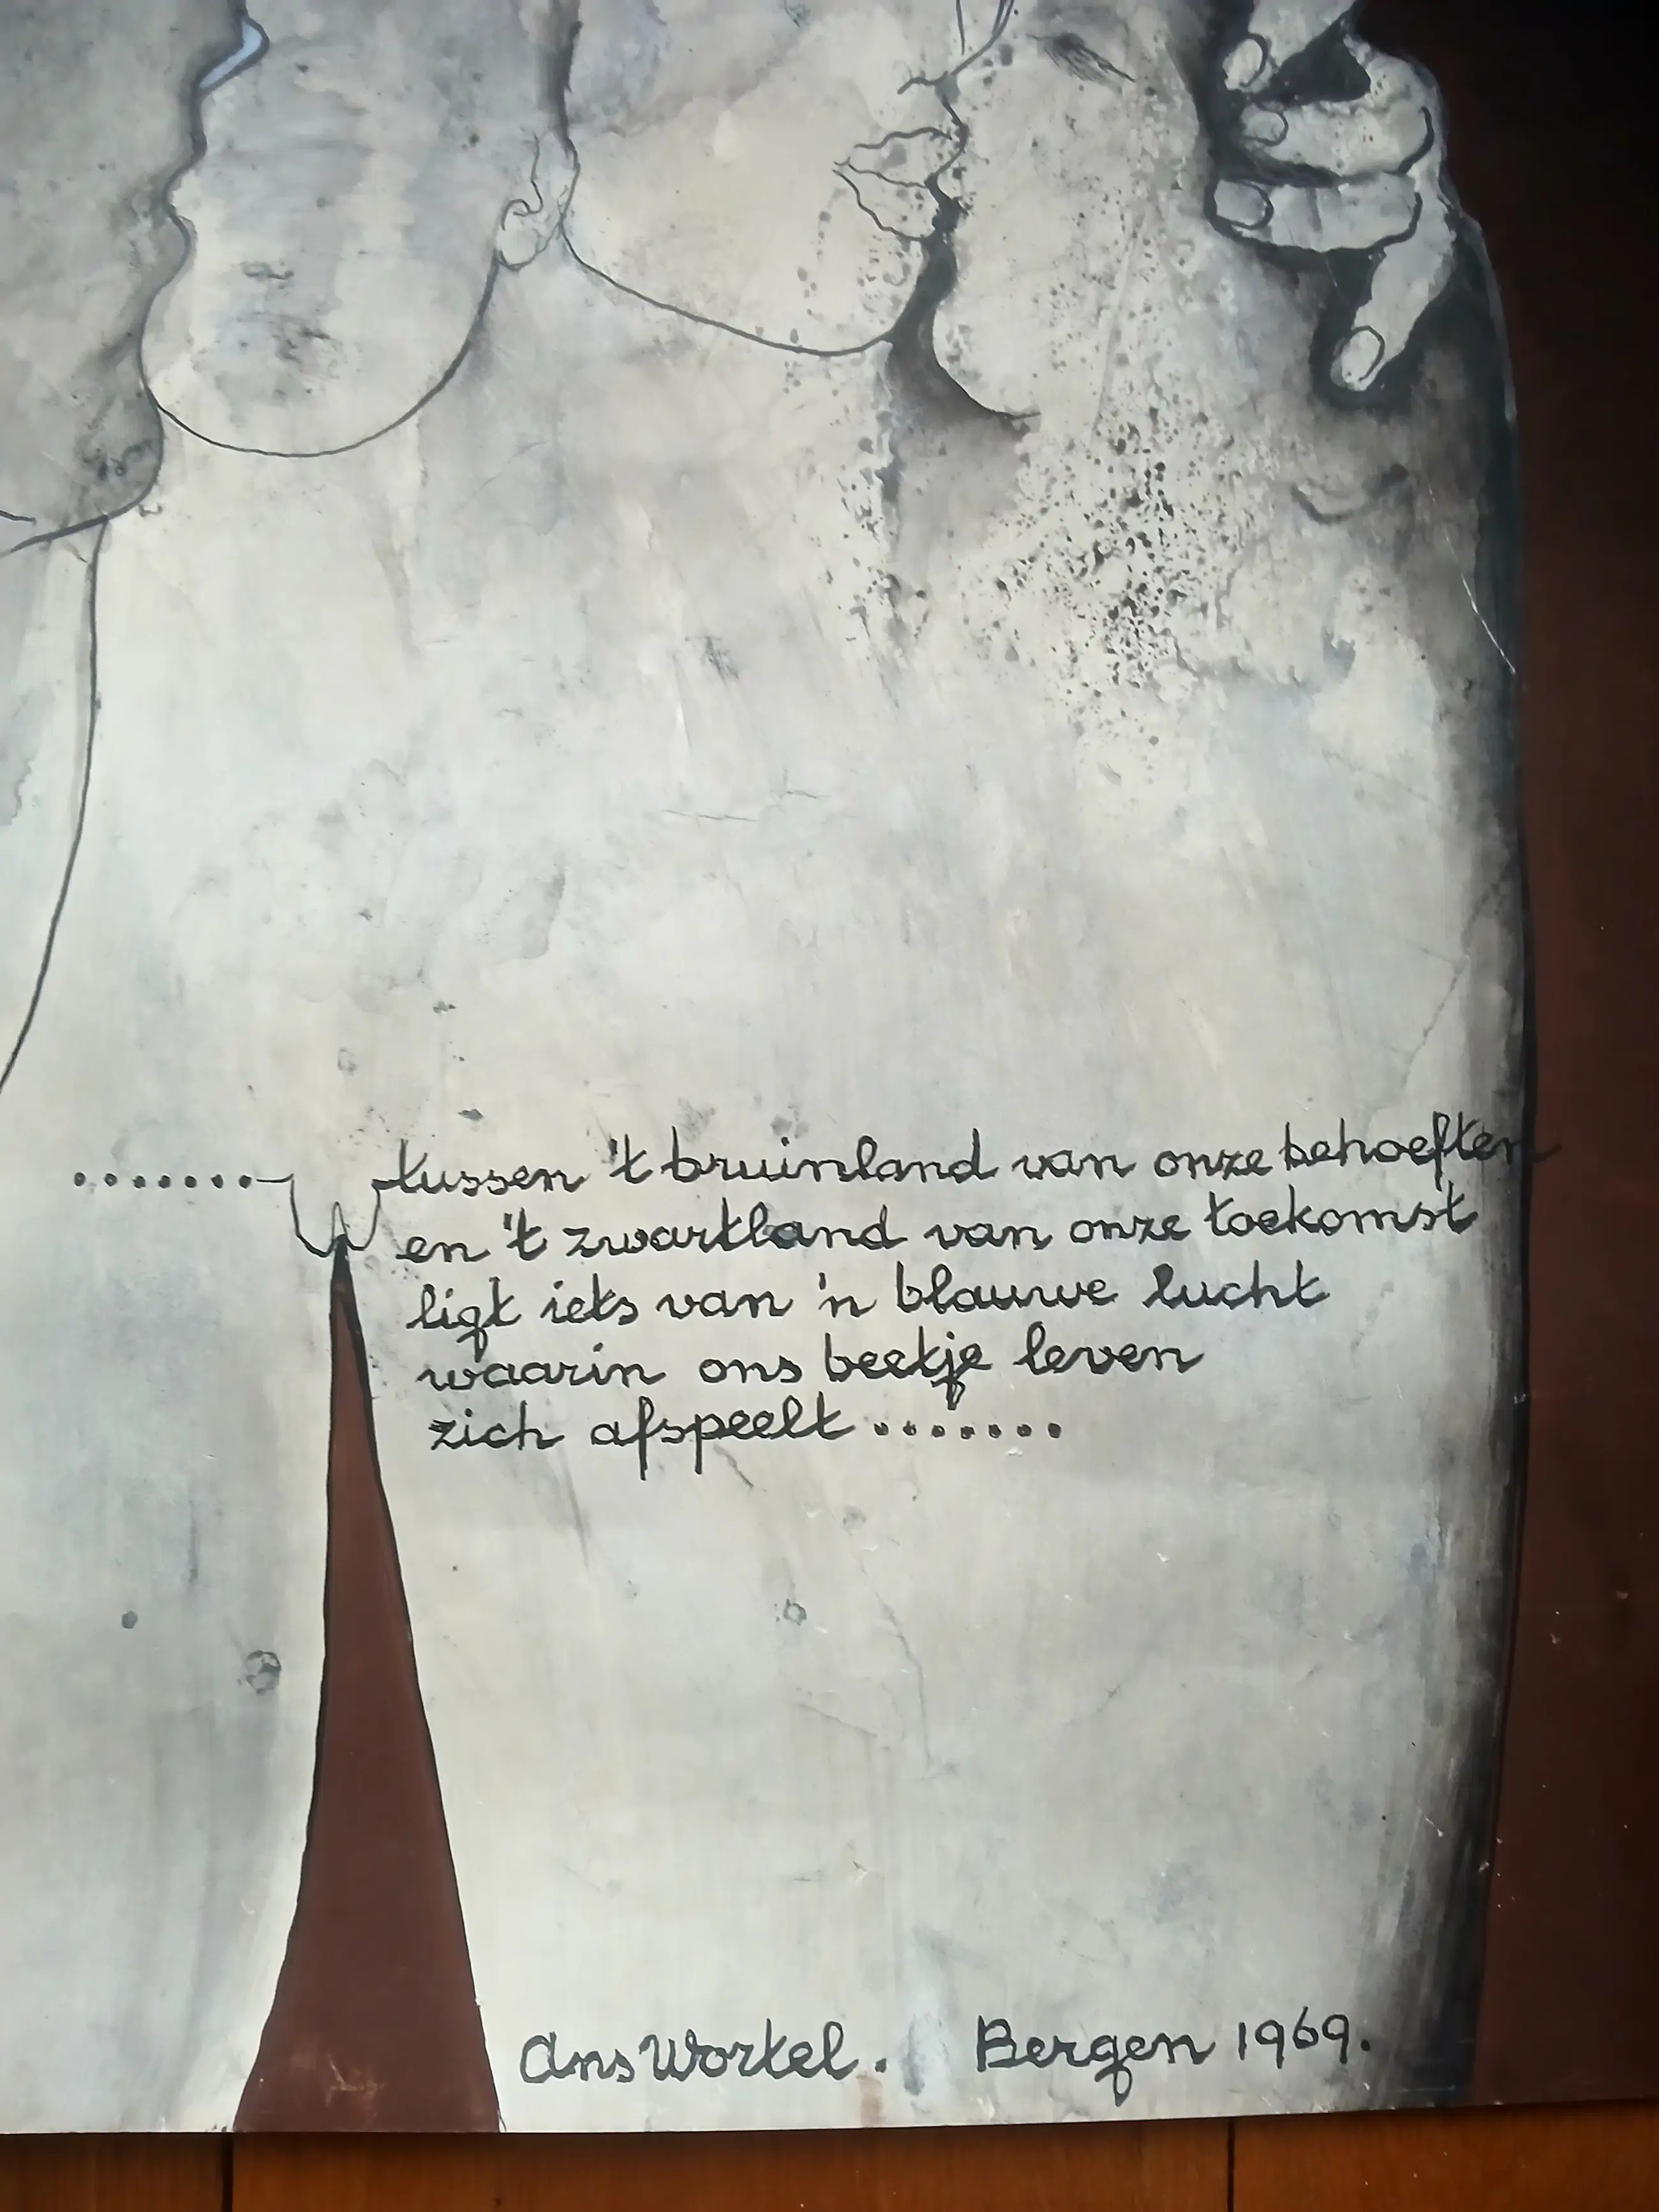 ........ tussen 't bruinland van onze behoeften
en 't zwartland van onze toekomst
ligt iets van 'n blauwe lucht
waarin ons beetje leven
zich afspeelt .......
Ans Wortel. Bergen 1969.